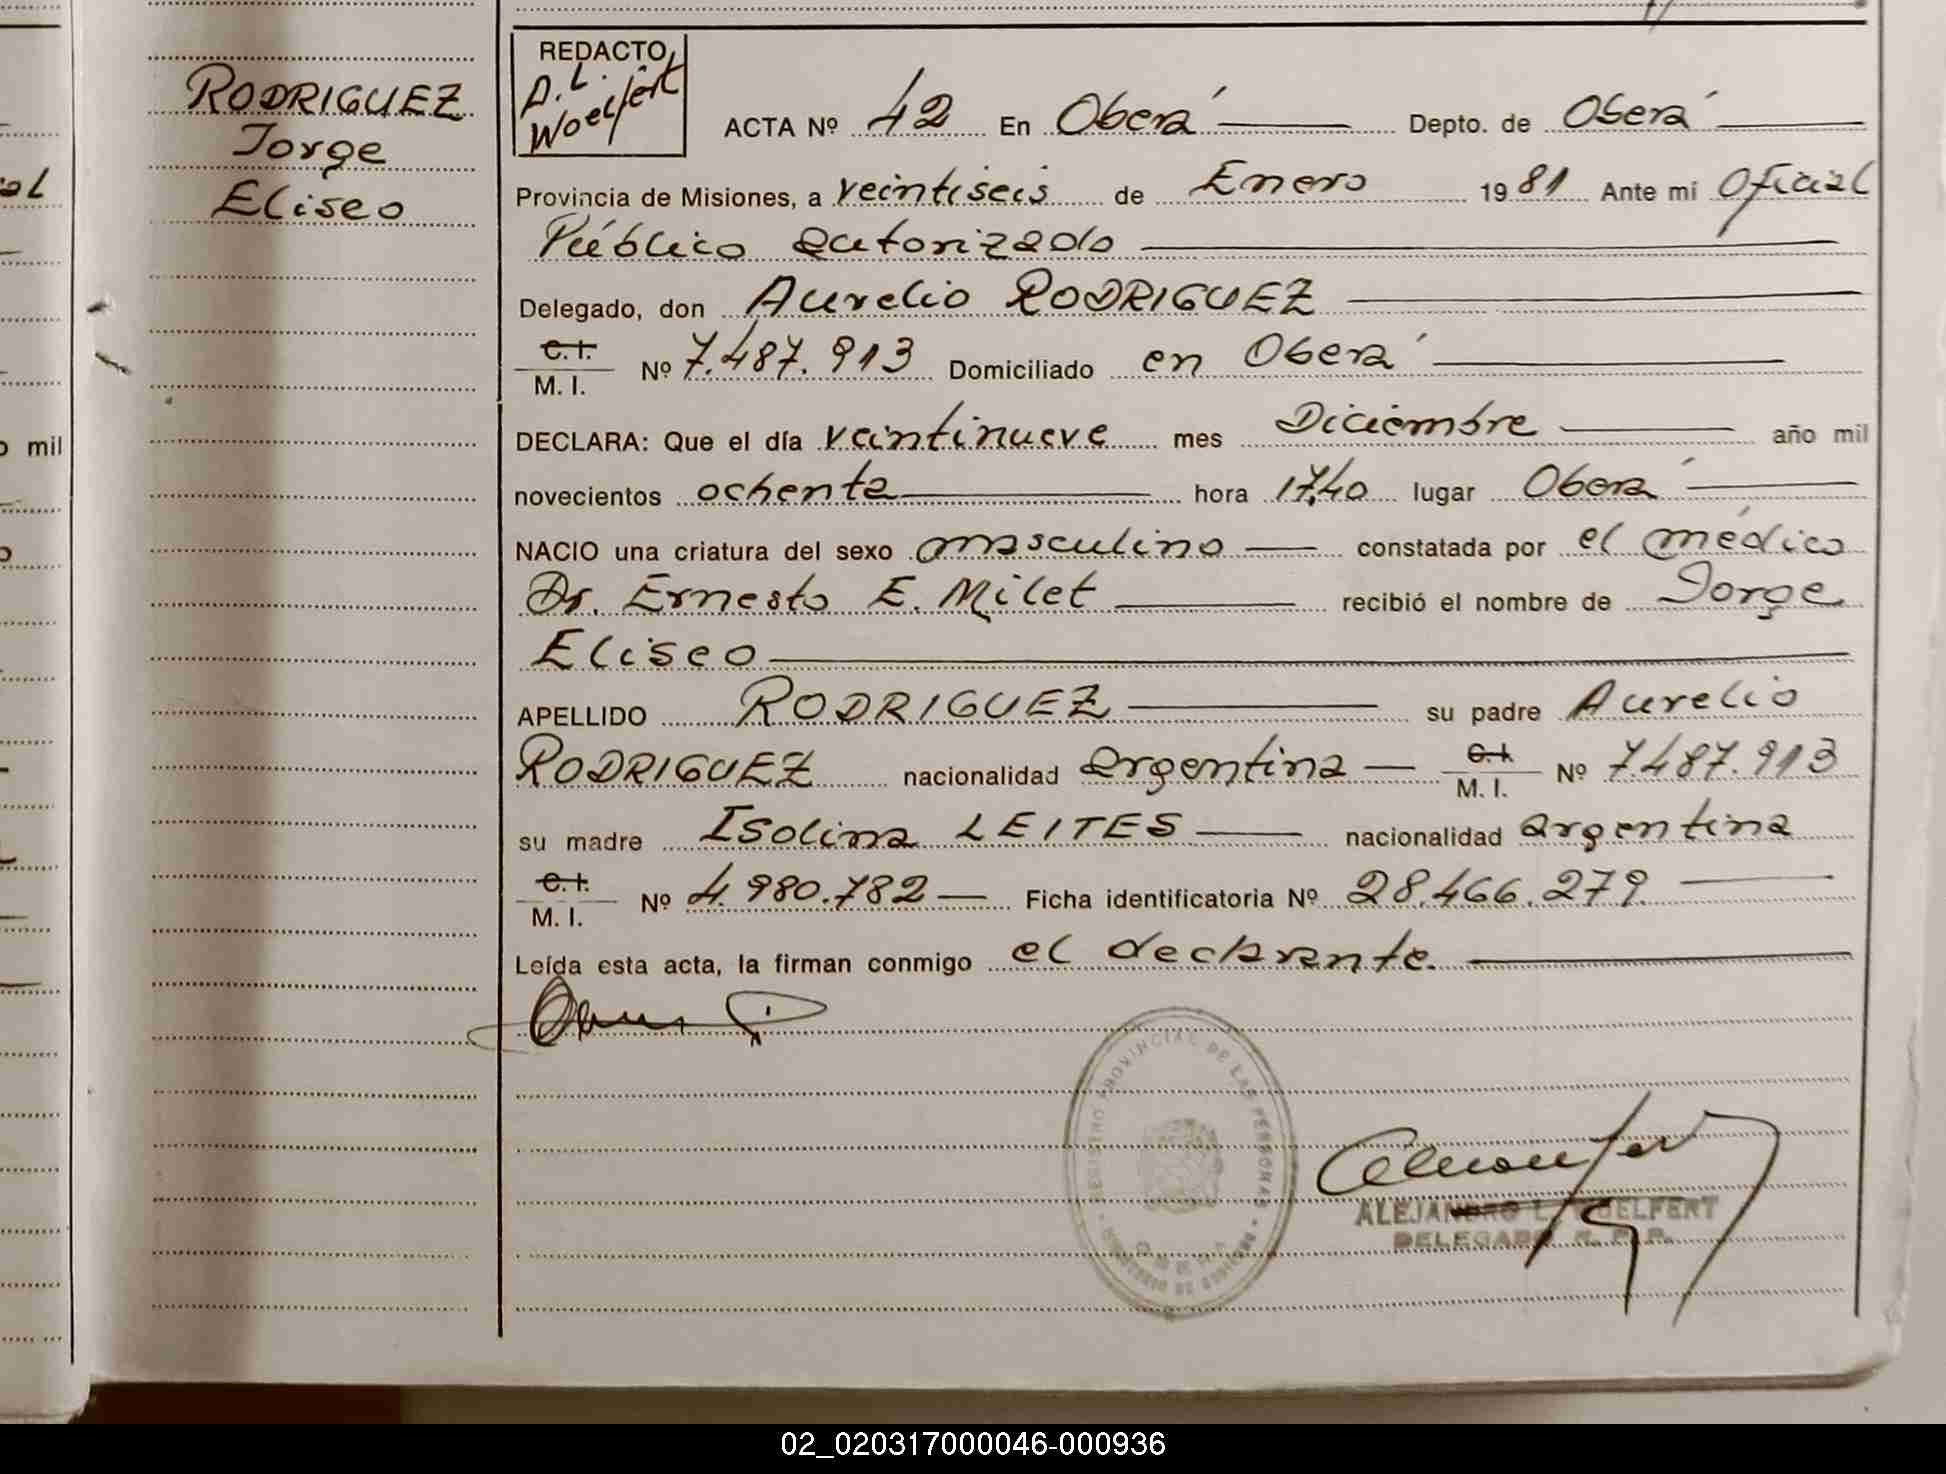 RODRIGUEZ
Jorge
Eliseo
REDACTO
A. L.
Woelfert
ACTA Nº 42 En Oberá Depto. de Oberá
Provincia de Misiones, a veintiseis de Enero 1981 Ante mí Oficial
Público autorizado
Delegado, don Aurelio RODRIGUEZ
C. I.
M. I. Nº 7.487.913 Domiciliado en Oberá
DECLARA: Que el día veintinueve mes Diciembre año mil
novecientos ochenta hora 17,40 lugar Oberá
NACIO una criatura del sexo masculino constatada por el médico
Dr. Ernesto E. Milet recibió el nombre de Jorge
Eliseo
APELLIDO RODRIGUEZ su padre Aurelio
RODRIGUEZ nacionalidad argentina C. I. M. I. Nº 7.487.913
su madre Isolina LEITES nacionalidad argentina
C. I.
M. I. Nº 4.980.782 Ficha identificatoria Nº 28.466.279
Leída esta acta, la firman conmigo el declarante.
REGISTRO PROVINCIAL DE LAS PERSONAS
MINISTERIO DE GOBIERNO
OBERA
ALEJANDRO L. WOELFERT
DELEGADO R. P. P.
o mil
02_020317000046-000936